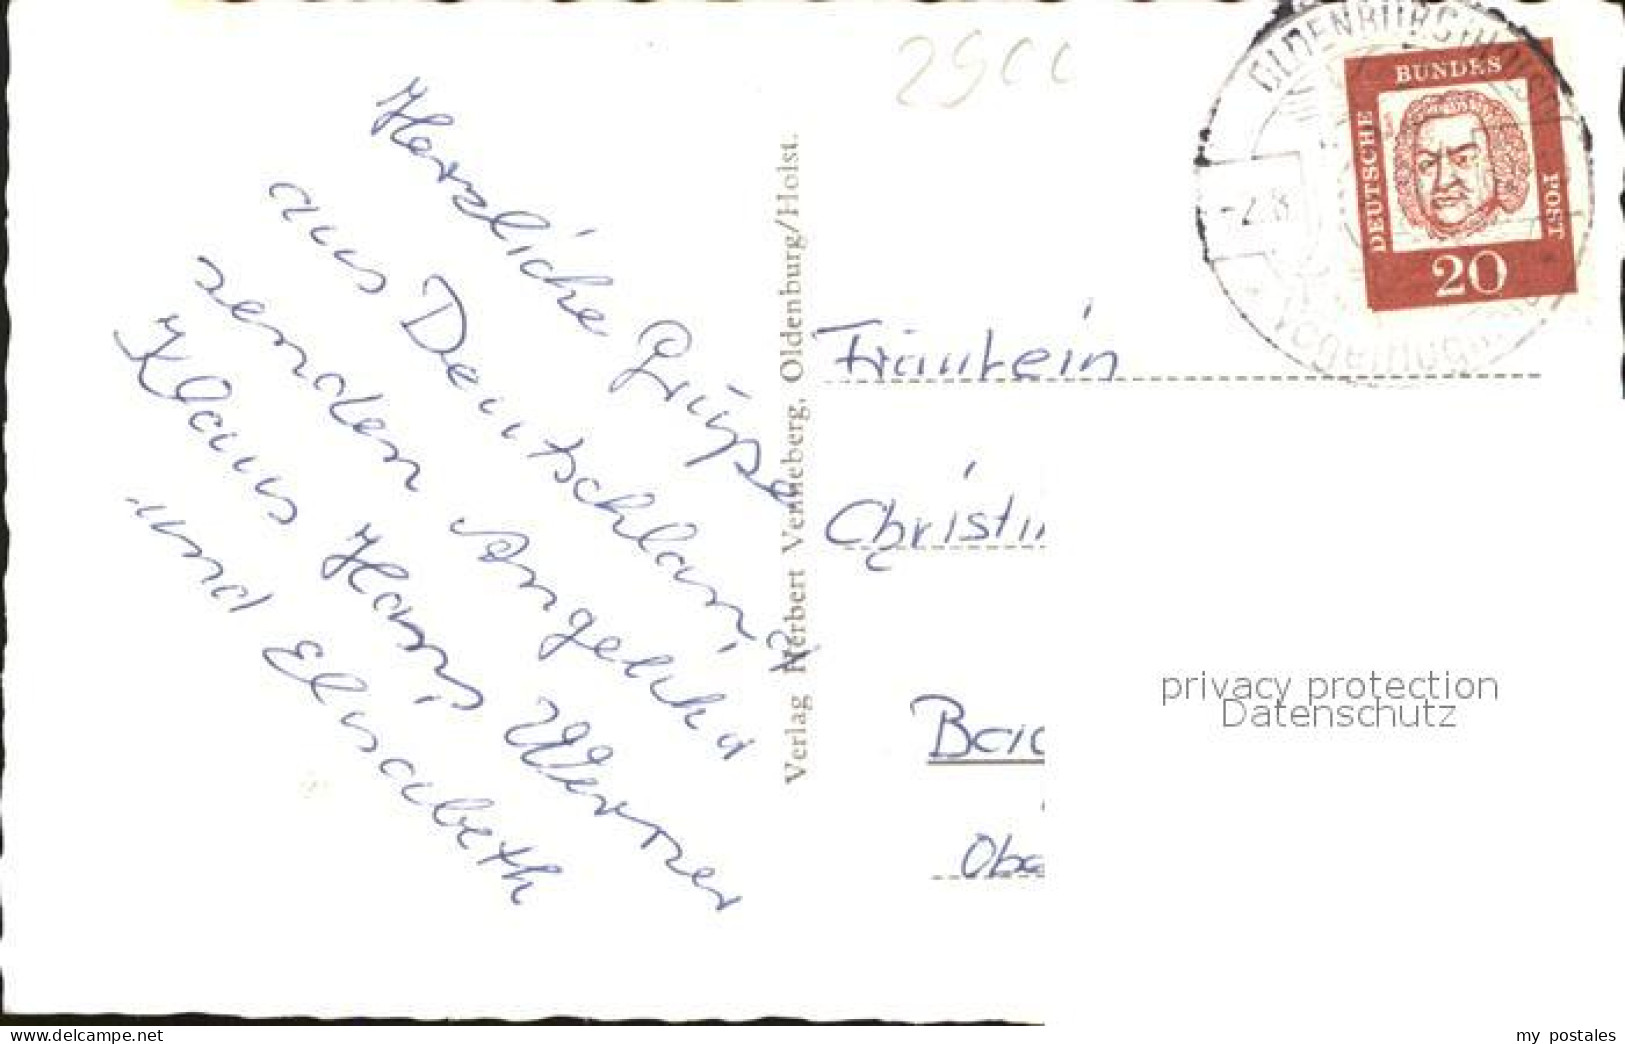 Herzliche Grüße
aus Deutschland
senden Angelika
Klaus Hans Werner
und Elisabeth
Verlag Herbert Venneberg, Oldenburg/Holst.
29CC
OLDENBURG (HOLST)
-2.8
DEUTSCHE
BUNDES
POST
20
Fräulein
Christin
Bad
Obe
privacy protection
Datenschutz
www.delcampe.net
my_postales